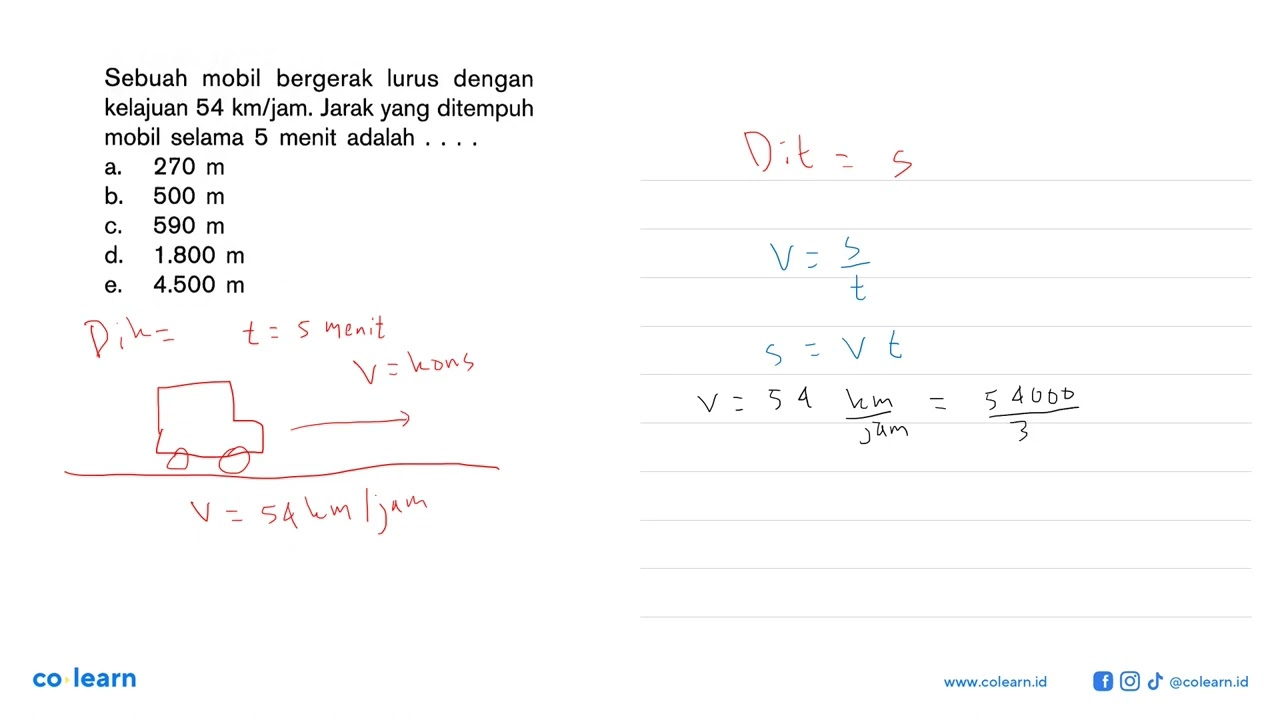 Sebuah mobil bergerak lurus dengan
kelajuan 54 km/jam. Jarak yang ditempuh
mobil selama 5 menit adalah . . . .
a. 270 m
b. 500 m
c. 590 m
d. 1.800 m
e. 4.500 m
Dik = t = 5 menit
V = kons
V = 54 km/jam
Dit = s
V = s/t
s = V t
V = 54 km/jam = 54000/3
co learn
www.colearn.id @colearn.id